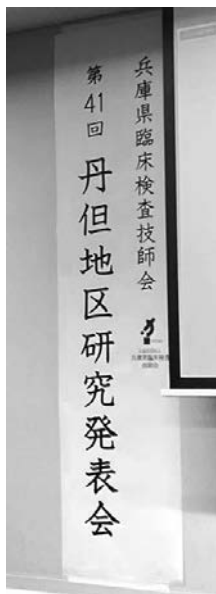 兵庫県臨床検査技師会
第41回 丹但地区研究発表会